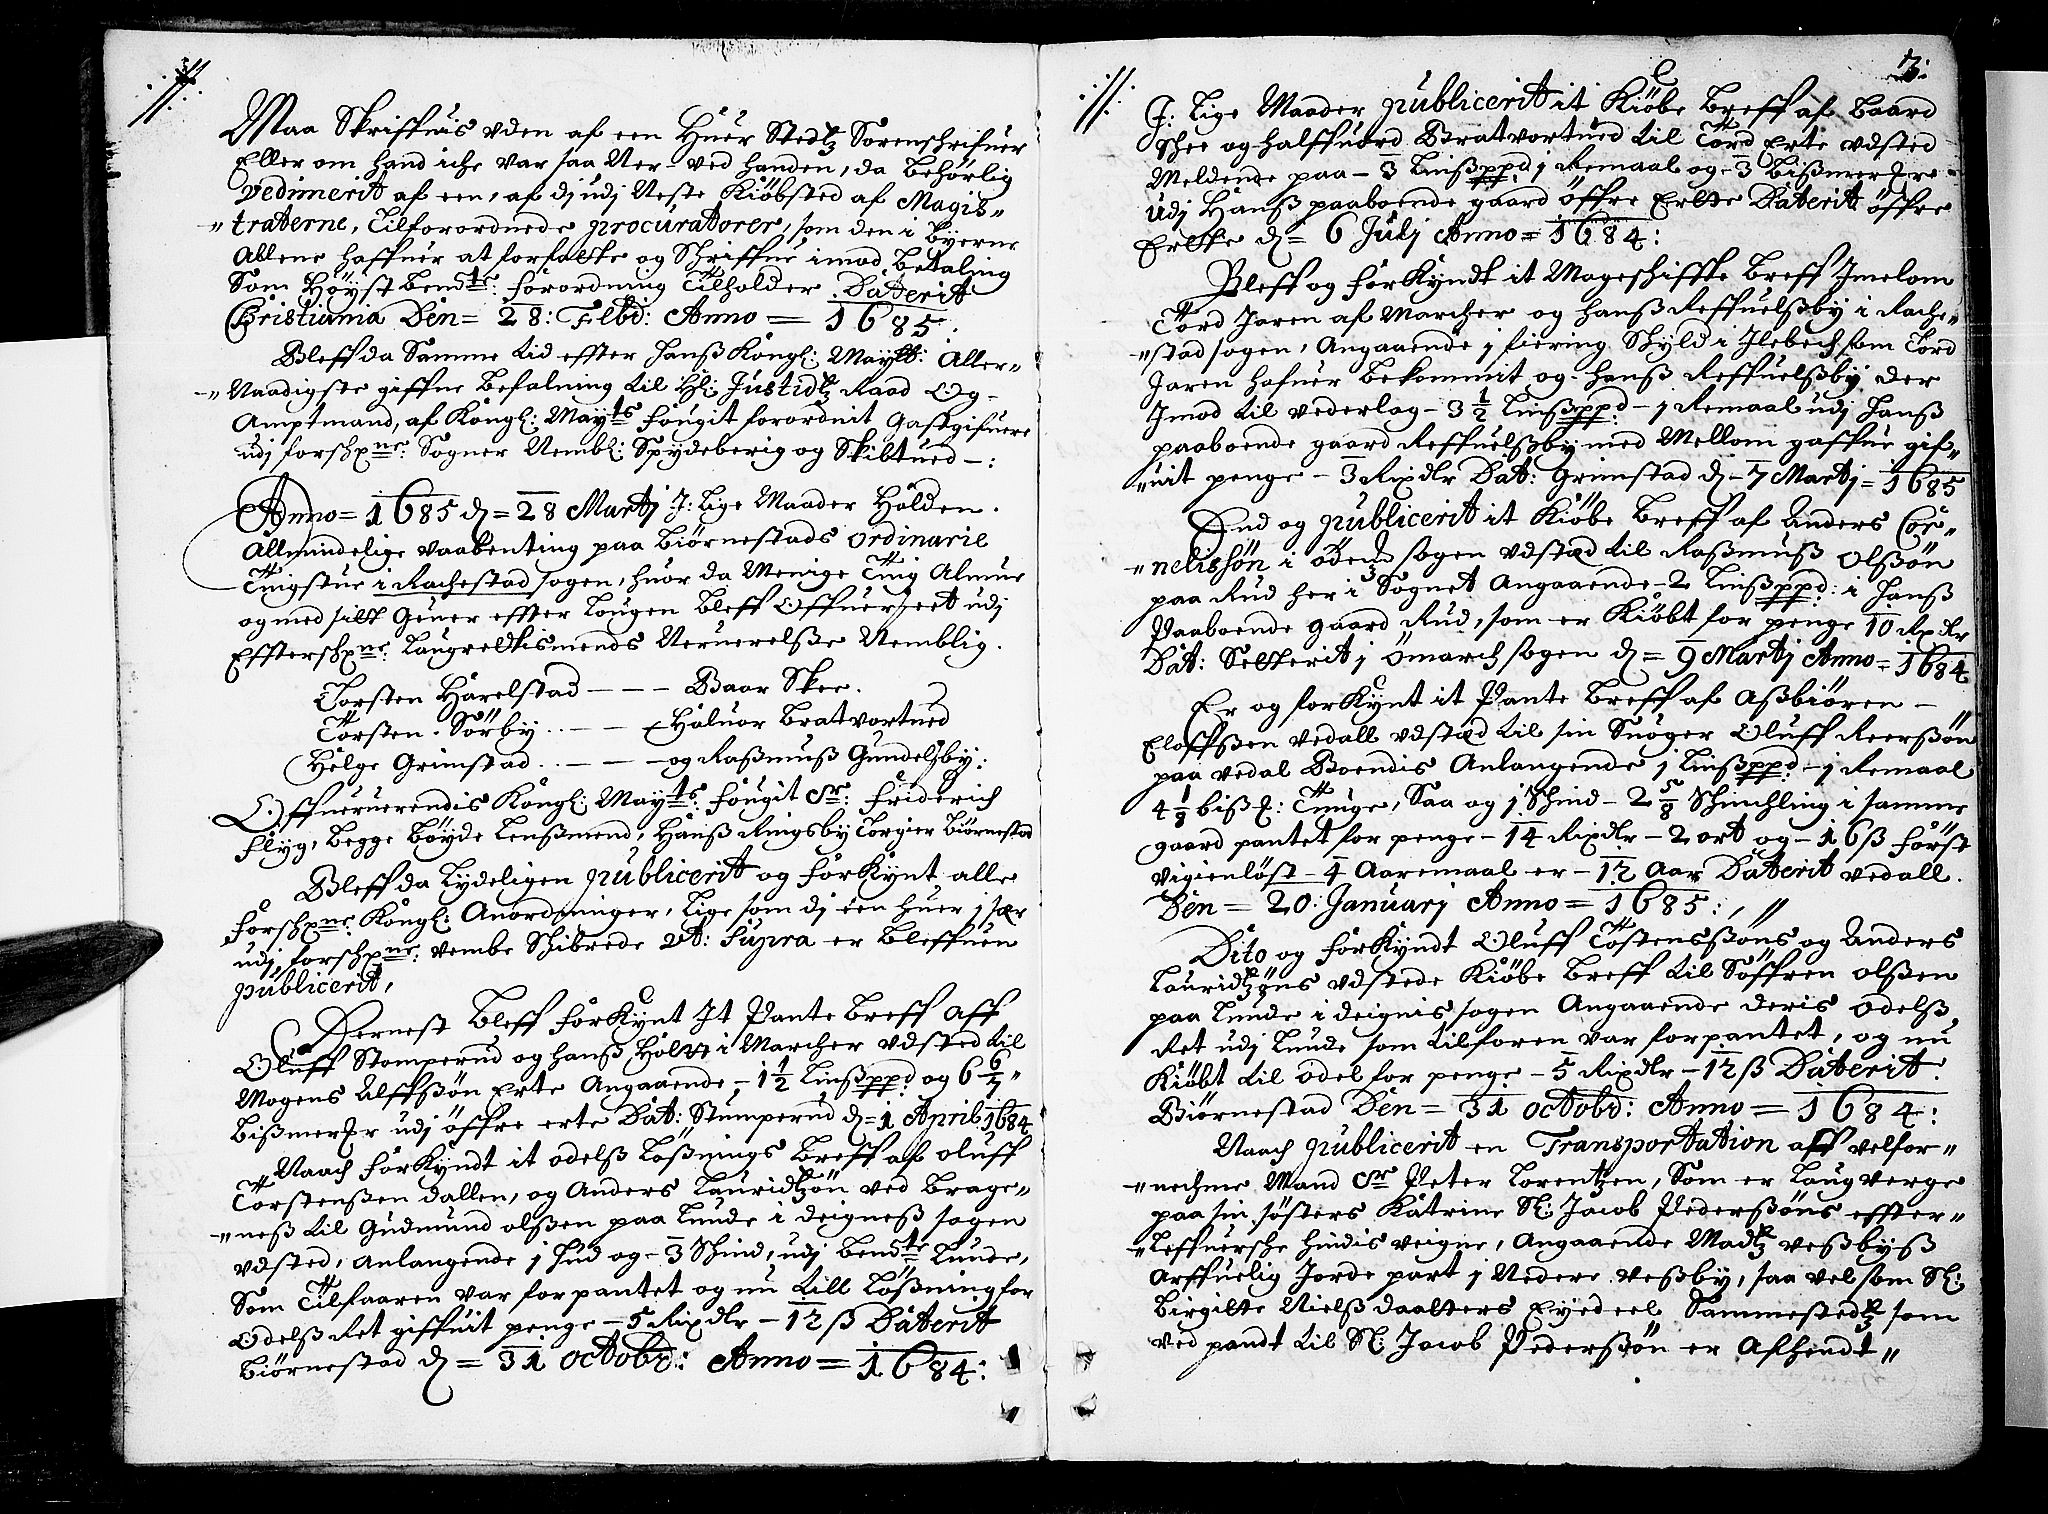 Maa Skriffuis uden af een Huer Stedtz Sorenschrifuer
Eller om hand iche var saa Ner ved handen, da behørlig
Vedimerit af een, af dj udj Neste Kiöbsted af Magis-
-traterne, Tilforordnede procuratorer, som den i Byerne
Allene haffuer at forfatte og Schriffue imod Betaling
Som Höyst bendte: forordning Tilholder Daterit
Christiania Den = 28: Febr: Anno = 1685.
Bleff da Samme tid effter hans Kongl: Maytt: Aller-
-Naadigste giffne befalning til Hl: Justidtz Raad Og
Amptmand, af Kongl: Mayts fougit forordnit Gastgifuere
udj forschrne: Sogner Nembl: Spydeberig og Skibtued -:
Anno = 1685 d = 28 Martj J: lige Maader Holden
Allmindelige vaabenting paa Biörnestads ordinarie
Tingstue i Rachestad sogen, huor da Menige Ting Almue
og med silt Geuer effter Lougen bleff Offuerseet udj
Effterschrne: Laugrettismends Neruerelsse Nemblig.
Torsten Harelstad - - - Baar Skee.
Torsten Sörby - - - Haluor Bratvortued
Helge Grimstad - - - og Rassmuss Gundelsby:
Offueruerendis Kongl: Mayts: fougit Sr: Friderich
Flyg, begge böyde Lenssmend, Hanss Ringsby Torgier Biörnestad
Bleff da lydeligen publicerit og forKynt alle
forschrne Kongl: Anordninger, lige som dj een huer i sær
udj forschrne: vembe Schibrede Ut: supra er bleffuen
publicerit,
Dernest bleff forKynt It Pante breff aff
Oluff Stomperud og hanss Holm i Marcher udsted til
Mogens Ulffssön Erte Angaaende - 1 1/2 Linssppd og 6 6/7
Bissmer Jr udj öffre erte Dat: Stumperud d = 1 April 1684
Naach forKyndt it odelss Lössnings breff af oluff
Torstenssen dallen, og Anders Lauridtzön ved Brage-
-ness til Gudmund olssen paa Lunde i deigness sogen
udsted, Anlangende j Hud og - 3 Schind, udj bendte Lunde,
Som Tilfaaren var forpantet og nu till Lössning for
Odelss Ret giffuit penge - 5 Rixdlr - 12 ss Daterit
Biörnestad d = 31 octobr: Anno = 1684:
3:
J: lige Maader publicerit it Kiöbe breff af baard
Schee og halffuord Bratvortued til Tord Erte udsted
Meldende paa - 3 Linssppd j Remaal og - 3 Bissmer Jre
udj Hanss paaboende gaard öffre Erlte Daterit öffre
Erltte d = 6 Julj Anno = 1684:
Bleff og forKyndt it Mageschiffte breff Imelom
Tord Jaren af Marcher og hanss Reffuelssby i Rache-
-stad sogen, Angaaende j fiering Skyld i Ilebech som Tord
Jaren hafuer bekommit og hanss Reffuelssby der
Imod til vederlag - 3 1/2 Linssppd - j Remaal udj hanss
paaboende gaard Reffuelssby med Mellom gaffue gif-
-uit penge - 3 Rixdlr Dat: Grimstad d - 7 Martj = 1685
End og publicerit it Kiöbe breff af Anders Cor-
-nelissön i ödens sogen udsted til Rassmuss Olssön
paa Rud her i Sognet Angaaende - 2 Linssppd: i hanss
Paaboende gaard Rud, som er Kiöbt for penge 10 Rixdlr
Dat: Selterit j ömarch sogen d = 9 Martj Anno = 1684
Er og forKynt it Pante breff af Assbiören -
Eloffssen vedall udsted til sin Suoger Oluff Reerssön
paa vedal Boendis Anlangende j Linssppd - j Remaal
4 1/8 biss L: Tunge, Saa og j Schind - 2 5/8 Schinchling i samme
gaard pantet for penge - 14 Rixdlr - 2 ort og - 16 ss först
vigienlöst - 4 Aaremaal er - 12 Aar Daterit vedall.
Den = 20: Januarj Anno = 1685:,
Dito og forKyndt Oluff Tostenssöns og Anders
Lauridtzöns udstede Kiöbe breff til Söffren olssen
paa Lunde i deignis sogen Angaaende deris odelss
Ret udj Lunde som tilforen var forpantet, og nu
Kiöbt til odel for penge - 5 Rixdlr - 12 ss Daterit.
Biörnestad Den = 31 octobr: Anno = 1684:
Naach publicerit en Transportation aff velfor-
-nehme Mand Sr Peter Lorentzen, Som er Laugverge
paa sin sösters Katrine Sl: Jacob Pederssöns effter-
-leffuersche hindis veigne, Angaaende Madtz vessbyss
Arffuelig Jorde part j Nedere vessby, saa vel som Sl:
Birgitte Nielss daatters Eyedeel Sammestedtz som
ved pandt til Sl: Jacob Pederssön er Afhendt